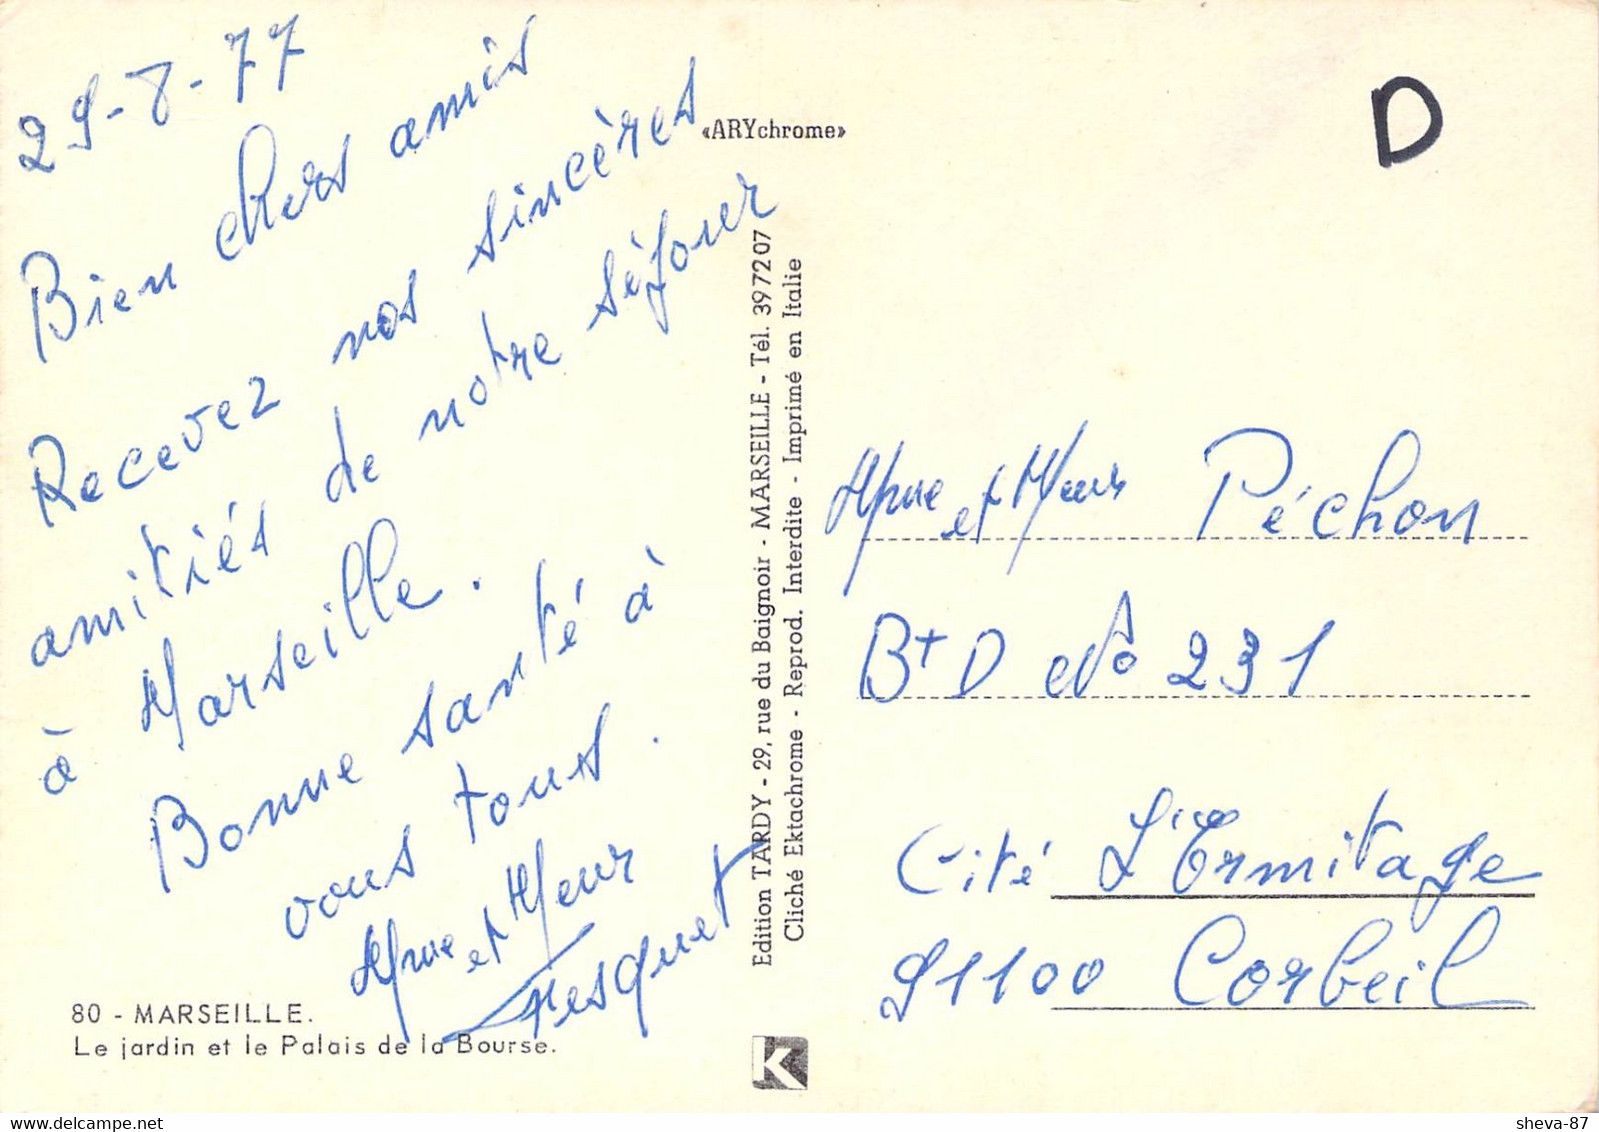 29-8-77
Bien chers amis
Recevez nos sincères
amitiés de notre séjour
à Marseille.
Bonne santé à
vous tous.
Mme et Meur
Fesquet
80 - MARSEILLE.
Le jardin et le Palais de la Bourse.
«ARYchrome»
Edition TARDY - 29, rue du Baignoir - MARSEILLE - Tél. 39 72 07
Cliché Ektachrome - Reprod. Interdite - Imprimé en Italie
K
D
Mme et Meur Péchon
Bt D No 231
Cité L'Ermitage
91100 Corbeil
delcampe.net
sheva-87